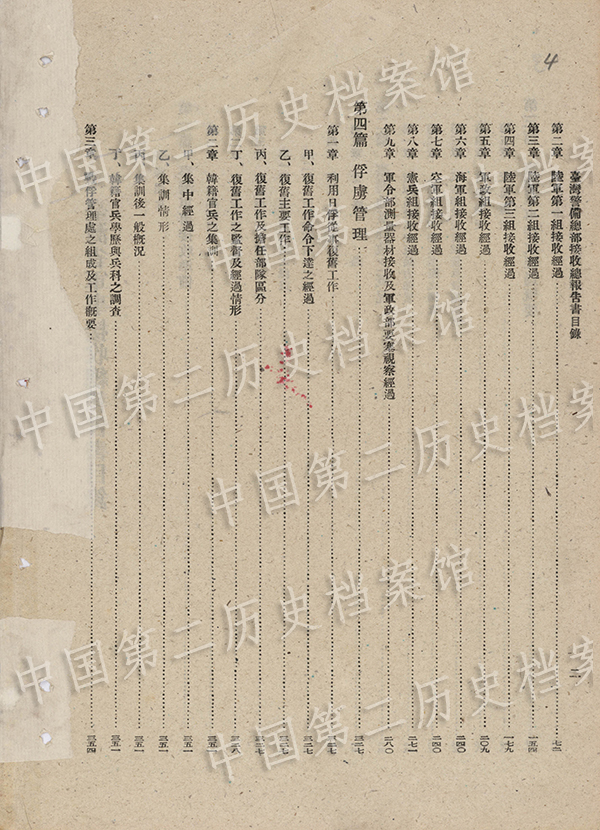 4
臺灣警備總部接收總報告書目錄
二
第二章 陸軍第一組接收經過 七二
第三章 陸軍第二組接收經過 一五四
第四章 陸軍第三組接收經過 一七九
第五章 軍政組接收經過 二〇九
第六章 海軍組接收經過 二四〇
第七章 空軍組接收經過 二四〇
第八章 憲兵組接收經過 二七一
第九章 軍令部測量器材接收及軍政部要塞視察經過 二八〇
第四篇 俘虜管理 三二七
第一章 利用日俘 復舊工作 三二七
甲、復舊工作命令下達之經過 三二七
乙、復舊主要工作 三二七
丙、復舊工作及擔任部隊區分 三二七
丁、復舊工作之監督及經過情形 三二八
第二章 韓籍官兵之集訓 三五一
甲、集中經過 三五一
乙、集訓情形 三五一
丙、集訓後一般概況 三五一
丁、韓籍官兵學歷與兵科之調查 三五一
第三章 俘管理處之組成及工作概要 三五四
中国第二历史档案馆
中国第二历史档案馆
中国第二历史档案馆
中国第二历史档案馆
中国第二历史档案馆
中国第二历史档案馆